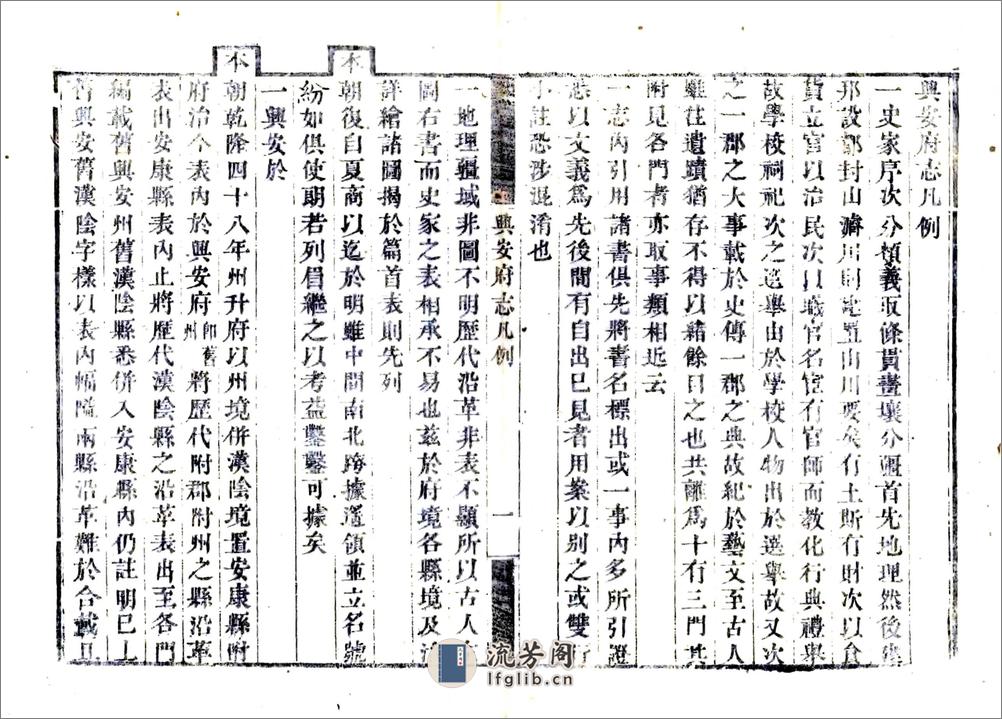 興安府志凡例
一史家序次分類義取條貫畫壤分疆首先地理然後建
邦設都封山濬川則建置山川要矣有土斯有財次以食
貨立官以治民次以職官名宦有官師而教化行典禮舉
故學校祠祀次之選舉由於學校人物出於選舉故又次
之一郡之大事載於史傳一郡之典故紀於藝文至古人
雖往遺蹟猶存不得以緒餘目之也共離爲十有三門其
附見各門者亦取事類相近云
一志內引用諸書俱先將書名標出或一事內多所引證
悉以文義爲先後間有自出已見者用案以别之或雙行
小註恐涉混淆也
興安府志凡例
一
一地理疆域非圖不明歷代沿革非表不顯所以古人左
圖右書而史家之表相承不易也兹於府境各縣境及
詳繪諸圖揭於篇首表則先列
本朝復自夏商以迄於明雖中間南北跨據遥領並立名號
紛如俱使朗若列眉繼之以考益鑿鑿可據矣
一興安於
本朝乾隆四十八年州升府以州境併漢陰境置安康縣附
府治今表內於興安府卽舊州將歷代附郡附州之縣沿革
表出安康縣表內止將歷代漢陰縣之沿革表出至各門
揭載舊興安州舊漢陰縣悉併入安康縣內仍註明已上
舊興安舊漢陰字樣以表內幅隘兩縣沿革難於合載且
流芳阁
lfglib.cn